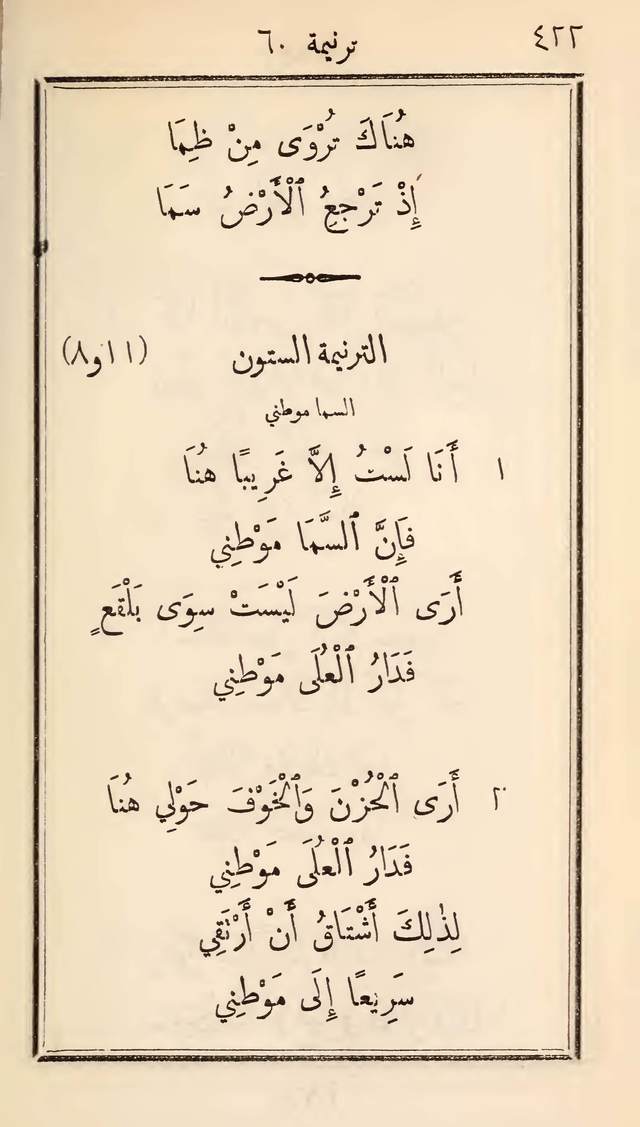 ٤٢٢ ترنيمة ٦٠
هُنَاكَ تُرْوَى مِنْ ظِمَا
إِذْ تَرْجِعُ ٱلْأَرْضُ سَمَا
الترنيمة الستون (١١ و٨)
السما موطني
١ أَنَا لَسْتُ إِلاَّ غَرِيبًا هُنَا
فَإِنَّ ٱلسَّمَا مَوْطِنِي
أَرَى ٱلْأَرْضَ لَيْسَتْ سِوَى بَلْقَعٍ
فَدَارُ ٱلْعُلَى مَوْطِنِي
٢ أَرَى ٱلْحُزْنَ وَٱلْخَوْفَ حَوْلِي هُنَا
فَدَارُ ٱلْعُلَى مَوْطِنِي
لِذٰلِكَ أَشْتَاقُ أَنْ أَرْتَقِي
سَرِيعًا إِلَى مَوْطِنِي